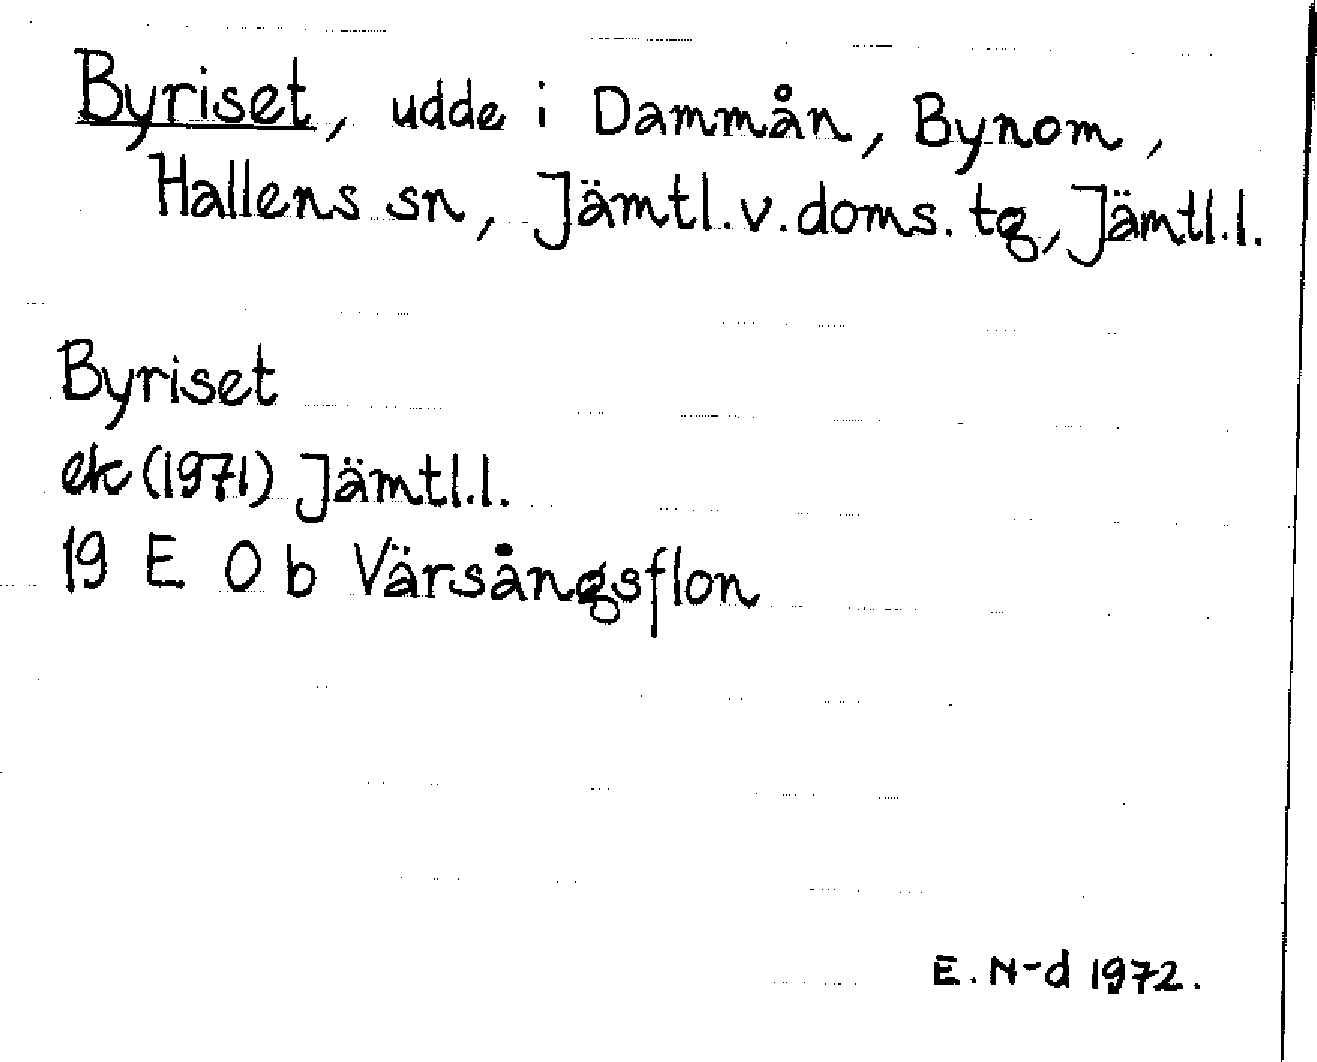 Byriset, udde i Dammån, Bynom,
Hallens sn, Jämtl.v.doms.tg, Jämtl.l.
Byriset
ek (1971) Jämtl.l.
19 E 0 b Värsångsflon
E. N-d 1972.